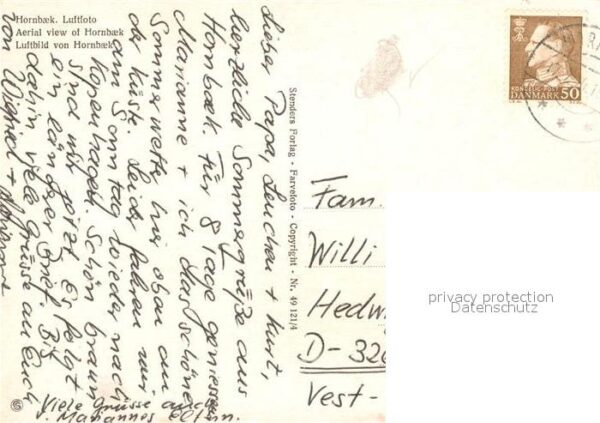 Hornbæk. Luftfoto
Aerial view of Hornbæk
Luftbild von Hornbæk
Lieber Papa, Lenchen + Kurt,
herzliche Sommergrüße aus
Hornbæk. Für 8 Tage geniessen
Marianne + ich das schöne
Sommerwetter hier oben an
der Küste. Leider fahren wir
am Sonntag wieder nach
Kopenhagen. Schön braun
sind wir jetzt. Es folgt
ein länger Brief. Bis
dahin viele Grüsse an Euch
von Winfried + Marianne
Viele Grüsse auch
v. Mariannes Eltern.
Stenders Forlag - Farvefoto - Copyright - Nr. 49 121/4
KONGELIG POST
DANMARK 50
Fam.
Willi
Hedw
D-32
Vest-
privacy protection
Datenschutz